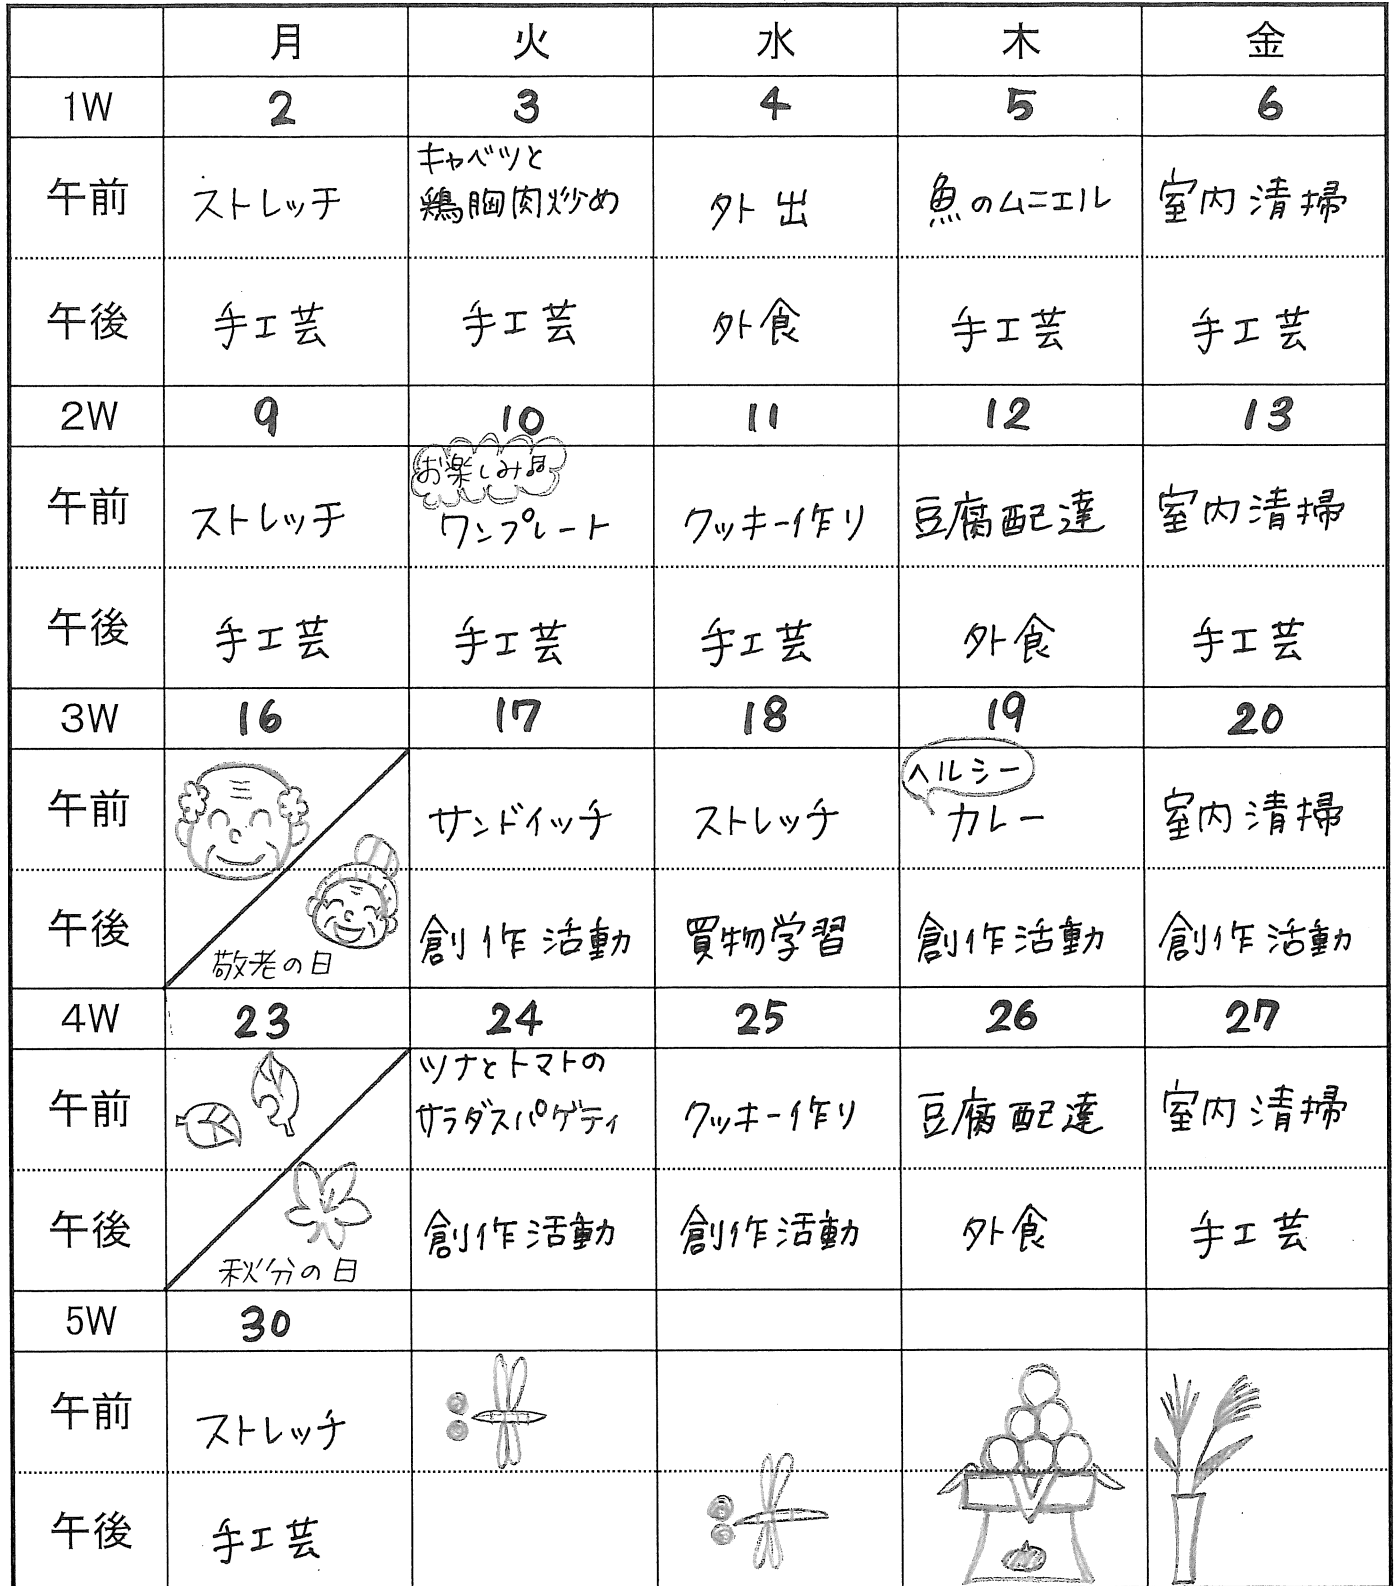 月 火 水 木 金
1W 2 3 4 5 6
午前 ストレッチ キャベツと 鶏胸肉炒め 外出 魚のムニエル 室内清掃
午後 手工芸 手工芸 外食 手工芸 手工芸
2W 9 10 11 12 13
午前 ストレッチ お楽しみ♬ ワンプレート クッキー作り 豆腐配達 室内清掃
午後 手工芸 手工芸 手工芸 外食 手工芸
3W 16 17 18 19 20
午前 サンドイッチ ストレッチ ヘルシー カレー 室内清掃
午後 敬老の日 創作活動 買物学習 創作活動 創作活動
4W 23 24 25 26 27
午前 ツナとトマトの サラダスパゲティ クッキー作り 豆腐配達 室内清掃
午後 秋分の日 創作活動 創作活動 外食 手工芸
5W 30
午前 ストレッチ
午後 手工芸